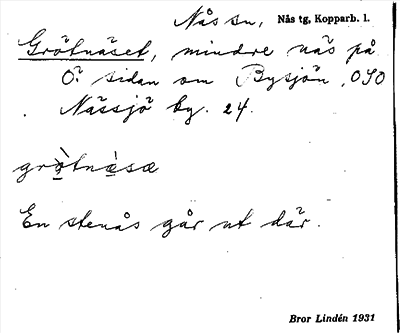 Nås sn, Nås tg, Kopparb. l.
Grötnäset, mindre näs på
Ö. sidan om Bysjön, OSO
Nässjö by. 24.
grö̀tnä̀sæ
En stenås går ut där.
Bror Lindén 1931